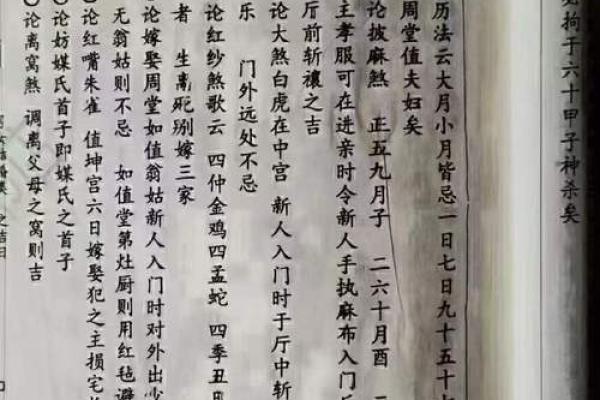 必拘于六十甲子神杀矣
历法云大月小月皆忌一日七日九十五十七
周堂值夫妇矣
论披麻煞 正五九月子 二六十月酉
主孝服可在进亲时令新人手执麻布入门后
厅前斩禳之吉
论大煞白虎在中宫 新人入门时于厅中斩
乐 门外远处不忌
论红纱煞歌云 四仲金鸡四孟蛇 四季丑日
者 生离死别嫁三家
论嫁娶周堂如值翁姑新人入门时对外出少
无翁姑则不忌 如值堂第灶厨则用红毡避
〇论红嘴朱雀 值坤宫六日嫁娶犯之主损宅
〇论妨媒氏首子即媒氏之首子
〇论离窝煞 调离父母之窝则吉